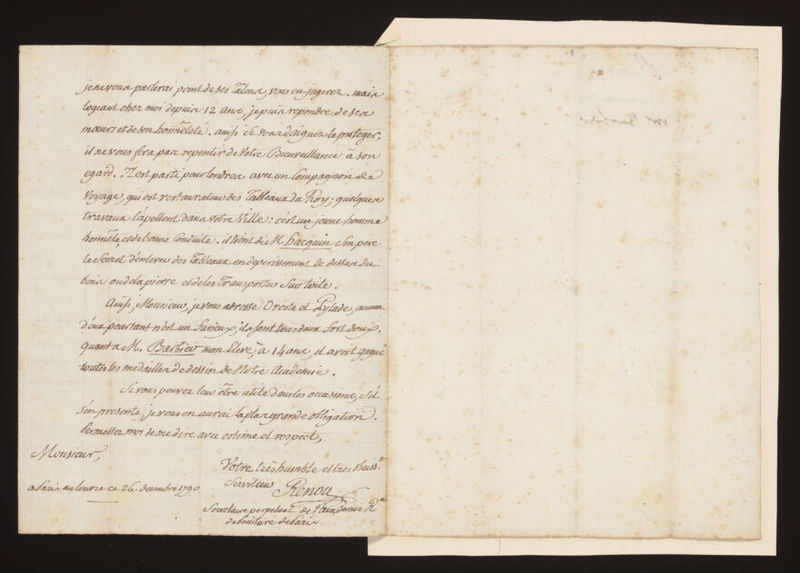 je ne vous parlerai point de ses talens, vous en jugerez, mais
logeant chez moi depuis 12 ans, je puis repondre de ses
mœurs et de son honnêteté. aussi si vous daignez le proteger,
il ne vous fera pas repentir de votre Bienveillance à son
egard. Il est parti pour londres avec un Compagnon de
Voyage, qui est restaurateur des Tableaux du Roy; quelques
travaux l'apellent dans votre Ville: c'est un jeune homme
honnête, et de bonne Conduite. il tient de M. hacquin Son pere
le Secret d'enlever des tableaux en dépérissement de dessus du
bois ou de la pierre et de les transporter Sur toile.
Ainsi, Monsieur, je vous adresse Oreste et Pylade, aucun
d'eux pourtant n'est un furieux, ils sont tous deux fort doux.
quant a M. Barbier mon Eleve, à 14 ans, il avoit gagné
toutes les médailles de dessin de Notre Academie.
Si vous pouvez leur être utile dans les occasions, s'il
s'en presente, je vous en aurai la plus grande obligation.
Permettez moi de me dire avec estime et respect,
Monsieur,
Votre très humble et tres obeiss.
Serviteur Renou
a Paris au louvre ce 26. decembre 1790
Secretaire perpetuel de l'academie R.
de peinture de Paris